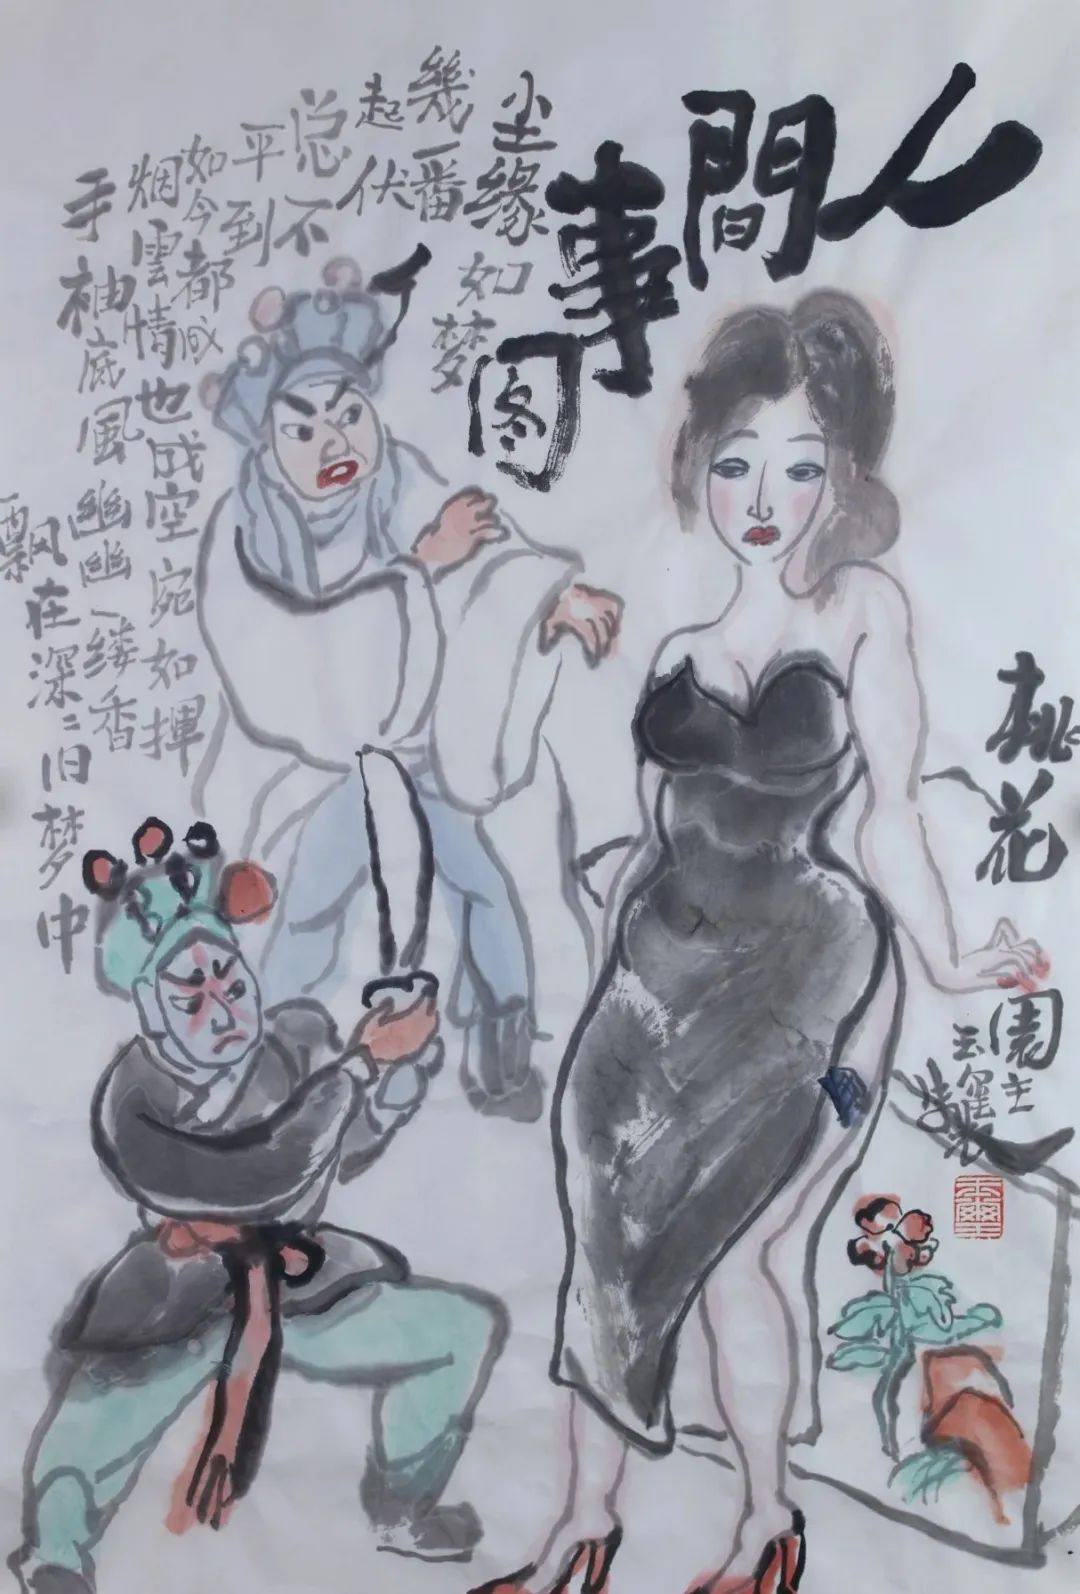 人間事图
尘缘如梦
幾番
起伏
总不
平到
如今都成
烟雲情也成空宛如揮
手袖底風幽幽一缕香
飘在深〻旧梦中
桃花
園主